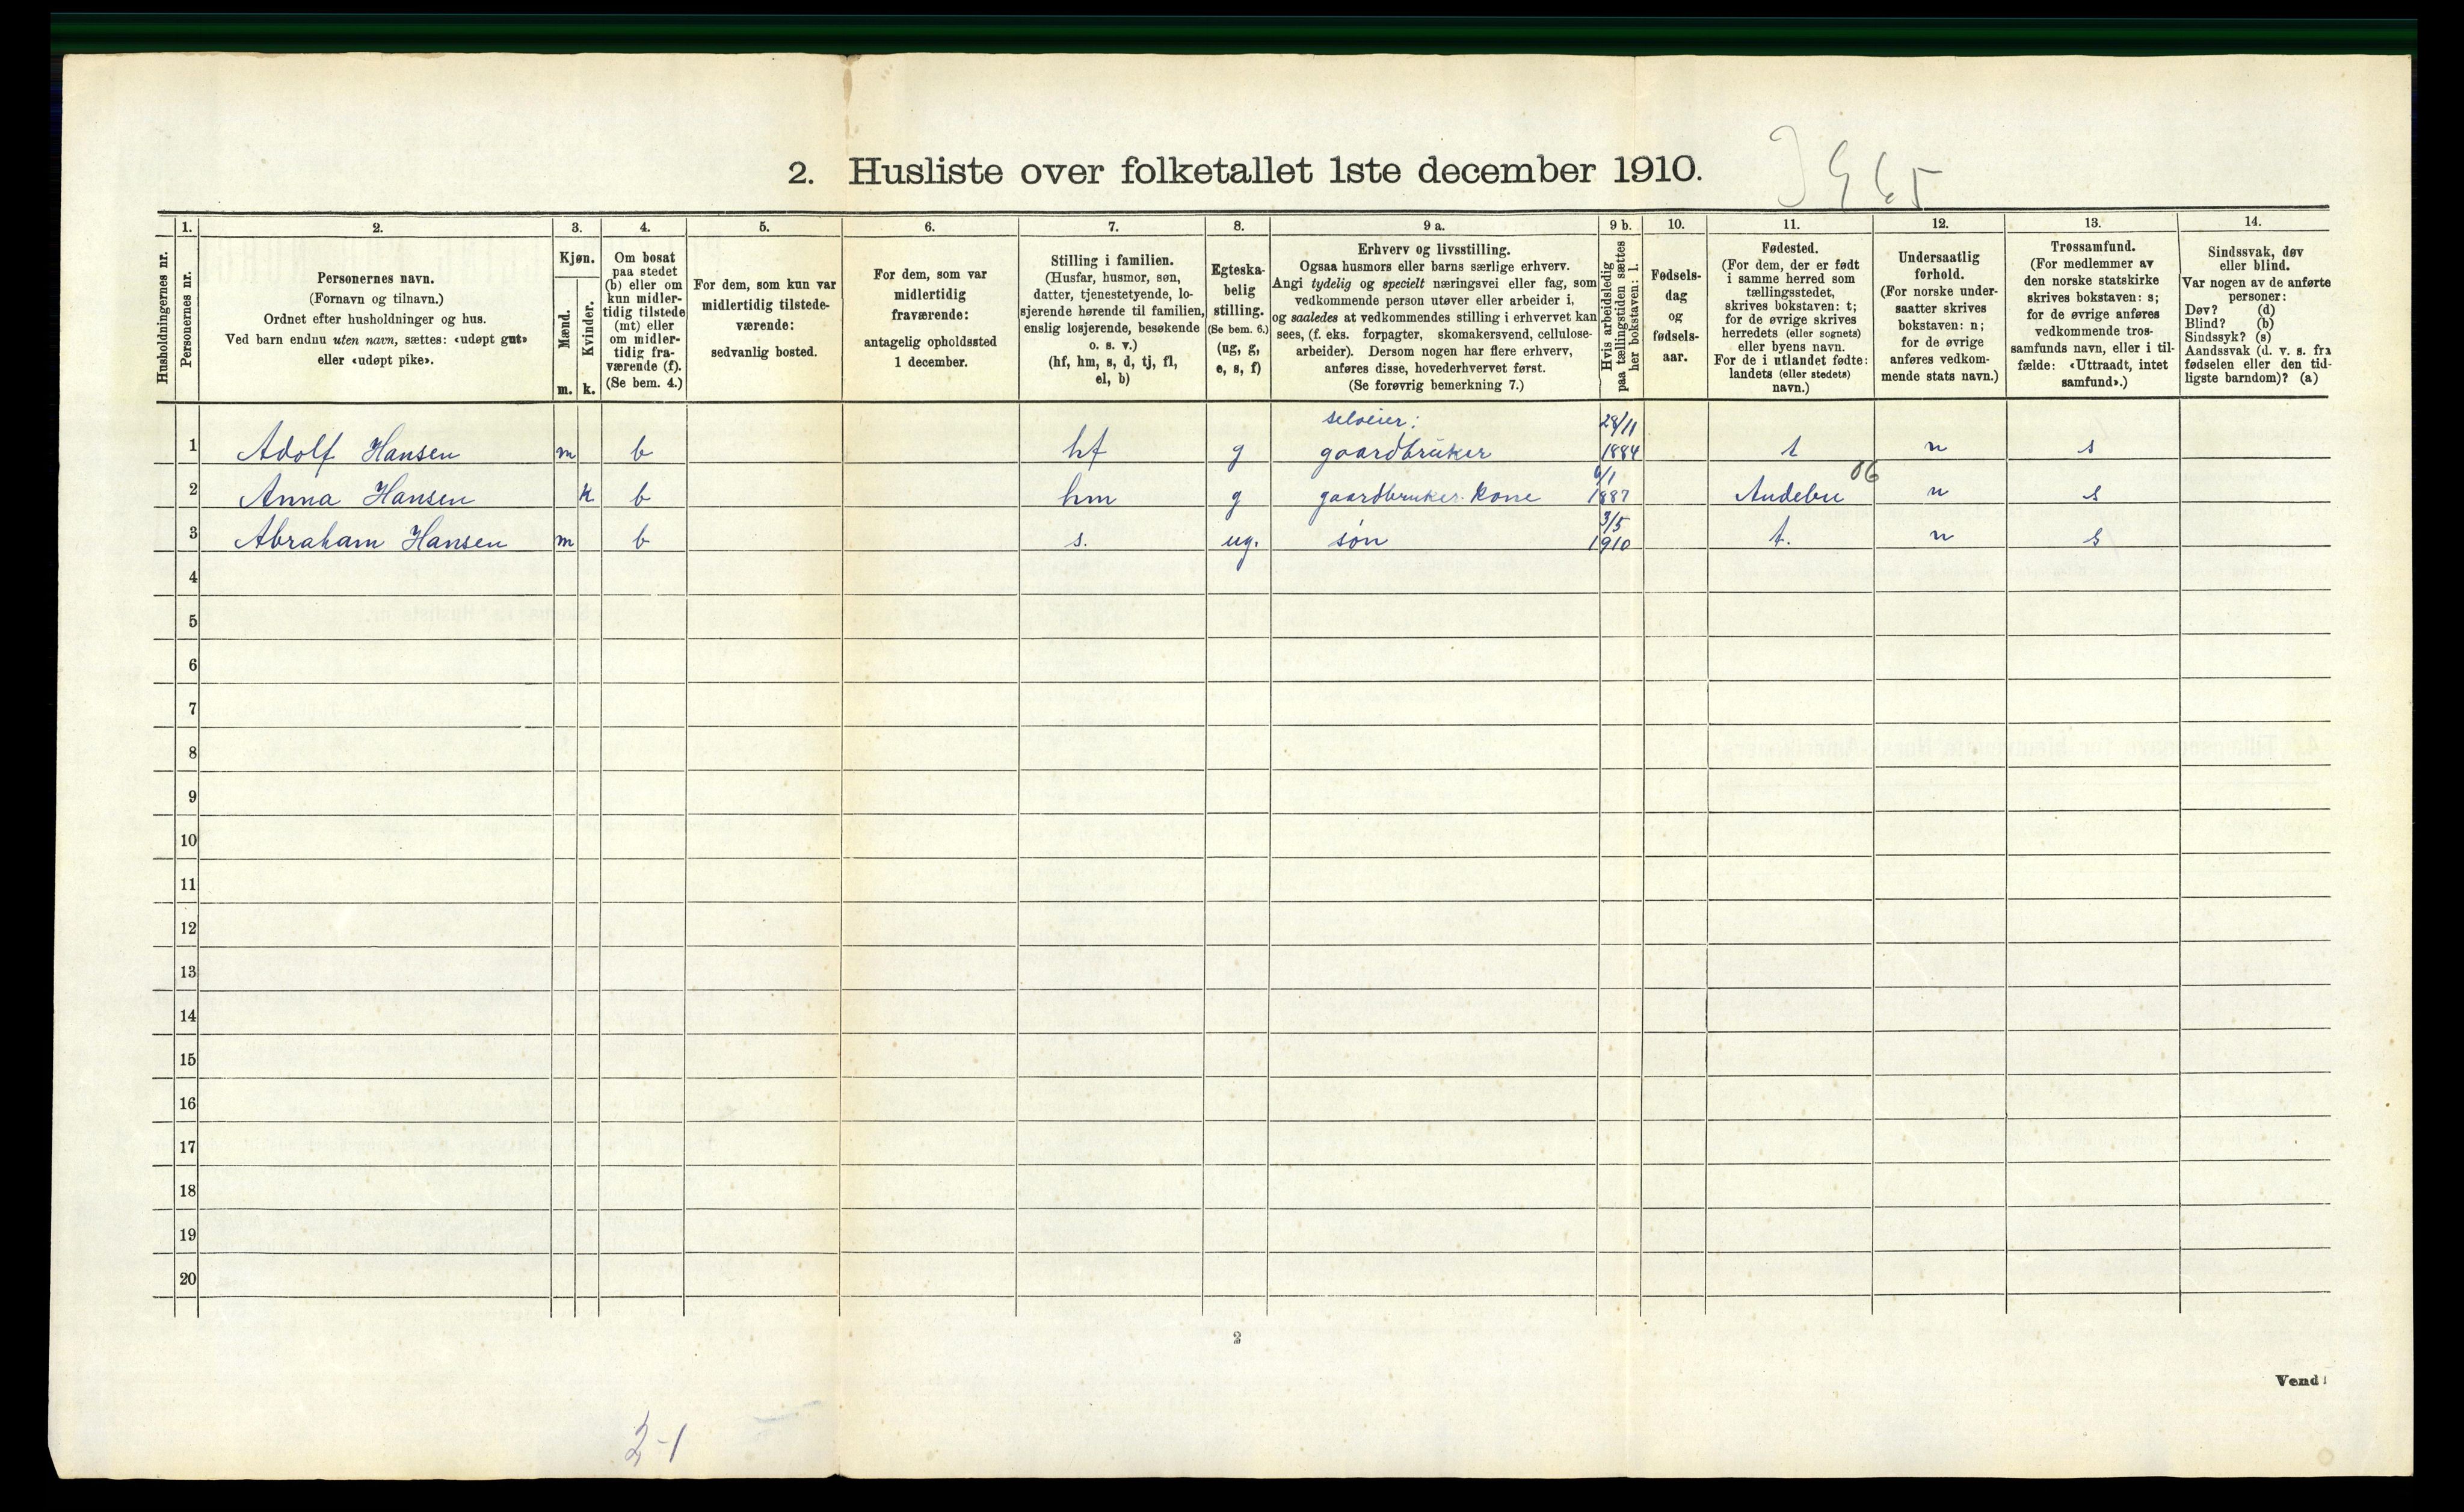 2. Husliste over folketallet 1ste december 1910.
Husholdningernes nr.
1.
Personernes nr.
2.
Personernes navn.
(Fornavn og tilnavn.)
Ordnet efter husholdninger og hus.
Ved barn endnu uten navn, sættes: «udøpt gut»
eller «udøpt pike».
3.
Kjøn.
Mænd.
Kvinder.
m. k.
4.
Om bosat
paa stedet
(b) eller om
kun midler-
tidig tilstede
(mt) eller
om midler-
tidig fra-
værende (f).
(Se bem. 4.)
5.
For dem, som kun var
midlertidig tilstede-
værende:
sedvanlig bosted.
6.
For dem, som var
midlertidig
fraværende:
antagelig opholdssted
1 december.
7.
Stilling i familien.
(Husfar, husmor, søn,
datter, tjenestetyende, lo-
sjerende hørende til familien,
enslig losjerende, besøkende
o. s. v.)
(hf, hm, s, d, tj, fl,
el, b)
8.
Egteska-
belig
stilling.
(Se bem. 6.)
(ug, g,
e, s, f)
9 a.
Erhverv og livsstilling.
Ogsaa husmors eller barns særlige erhverv.
Angi tydelig og specielt næringsvei eller fag, som
vedkommende person utøver eller arbeider i,
og saaledes at vedkommendes stilling i erhvervet kan
sees, (f. eks. forpagter, skomakersvend, cellulose-
arbeider). Dersom nogen har flere erhverv,
anføres disse, hovederhvervet først.
(Se forøvrig bemerkning 7.)
9 b.
Hvis arbeidsledig
paa tællingstiden sættes
her bokstaven: l.
10.
Fødsels-
dag
og
fødsels-
aar.
11.
Fødested.
(For dem, der er født
i samme herred som
tællingsstedet,
skrives bokstaven: t;
for de øvrige skrives
herredets (eller sognets)
eller byens navn.
For de i utlandet fødte:
landets (eller stedets)
navn.)
12.
Undersaatlig
forhold.
(For norske under-
saatter skrives
bokstaven: n;
for de øvrige
anføres vedkom-
mende stats navn.)
13.
Trossamfund.
(For medlemmer av
den norske statskirke
skrives bokstaven: s;
for de øvrige anføres
vedkommende tros-
samfunds navn, eller i til-
fælde: «Uttraadt, intet
samfund».)
14.
Sindssvak, døv
eller blind.
Var nogen av de anførte
personer:
Døv? (d)
Blind? (b)
Sindssyk? (s)
Aandssvak (d. v. s. fra
fødselen eller den tid-
ligste barndom)? (a)
selveier: 28/11
1 Adolf Hansen m b hf g gaardbruker 1884 t n s
6/1 06
2 Anna Hansen k b hm g gaardbruker kone 1887 Andebu n s
3/5
3 Abraham Hansen m b s. ug. søn 1910 t. n s
4
5
6
7
8
9
10
11
12
13
14
15
16
17
18
19
20
2
Vend!
2-1